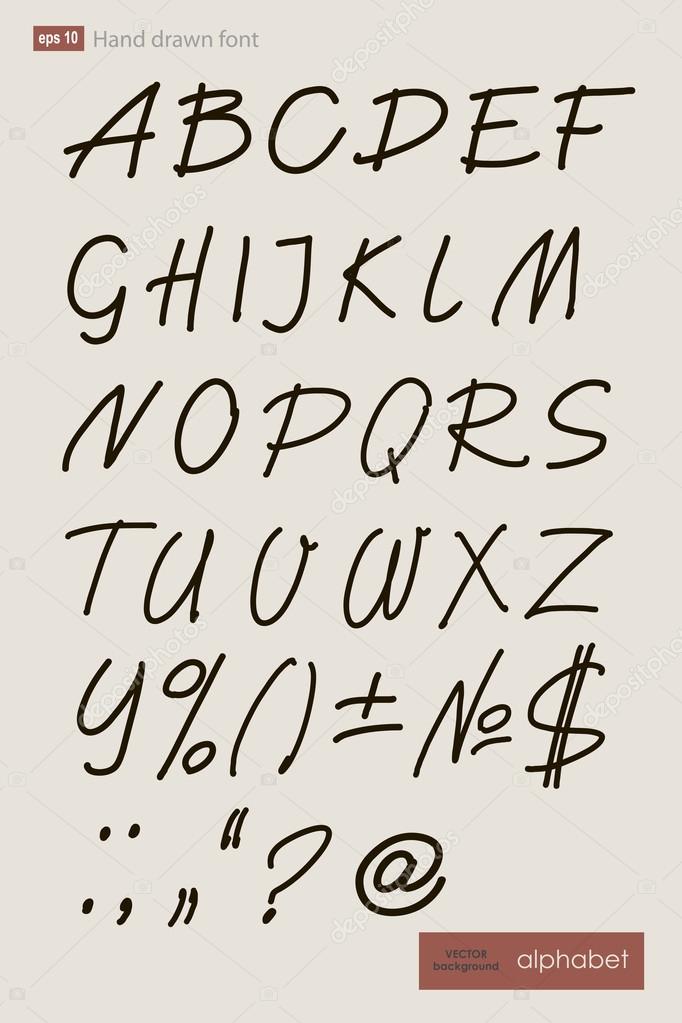 eps 10 Hand drawn font
A B C D E F
G H I J K L M
N O P Q R S
T U V W X Z
Y % ( ) ± № $
: ; „ “ ? @
VECTOR
background
alphabet
depositphotos